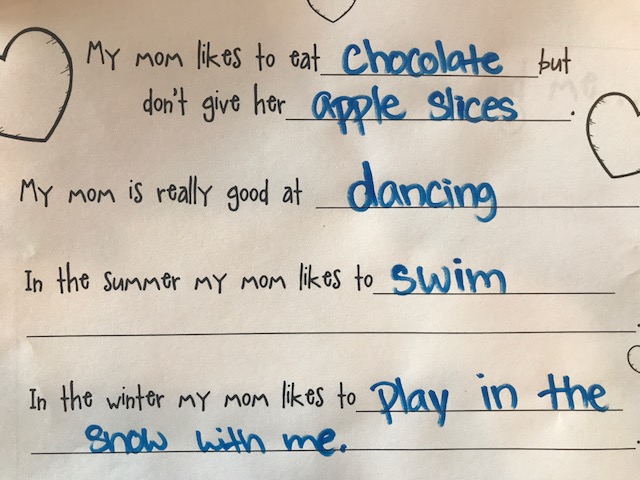 My mom likes to eat chocolate but
don't give her apple slices.
My mom is really good at dancing
In the summer my mom likes to swim
.
In the winter my mom likes to play in the
snow with me. .